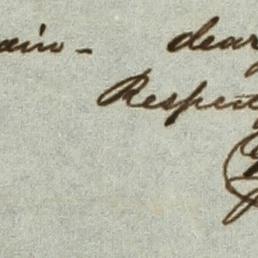 ain - dear
Respect